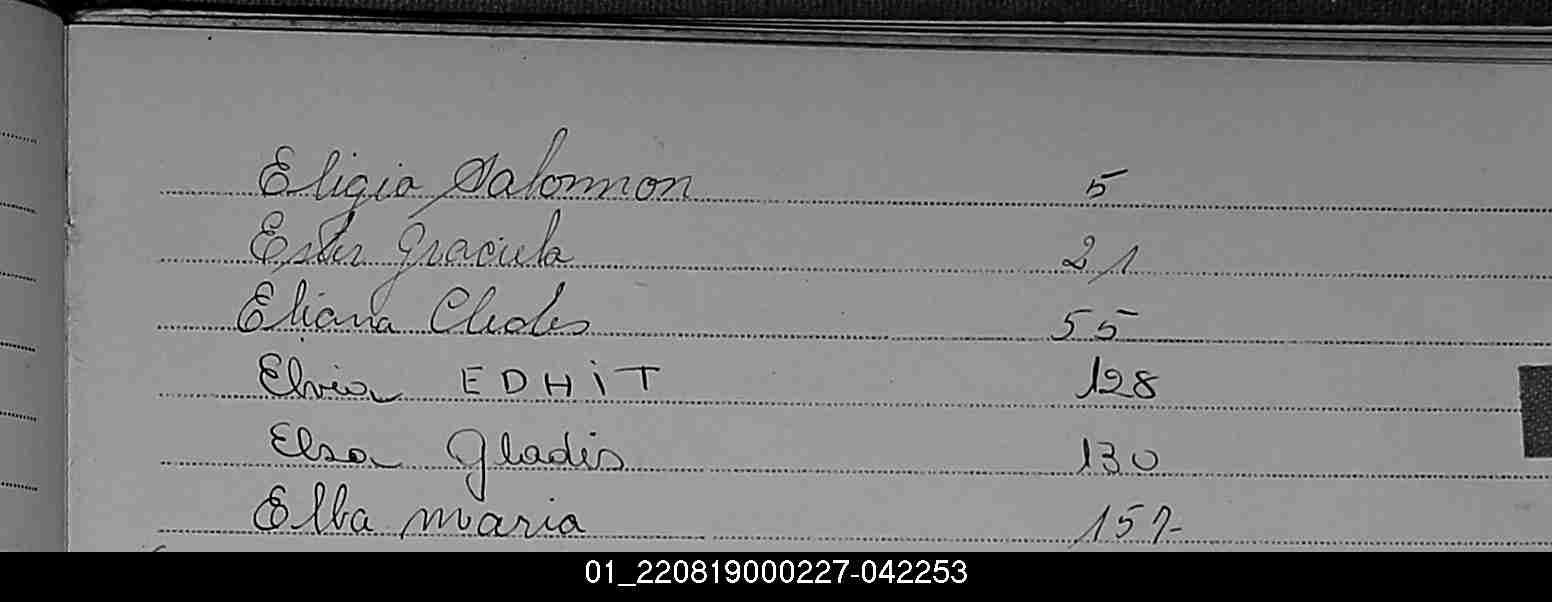 Eligio Salommon 5
Ester Graciela 21
Eliana 55
Elvia EDHIT 128
Elsa Gladis 130
Elba maria 157-
01_220819000227-042253